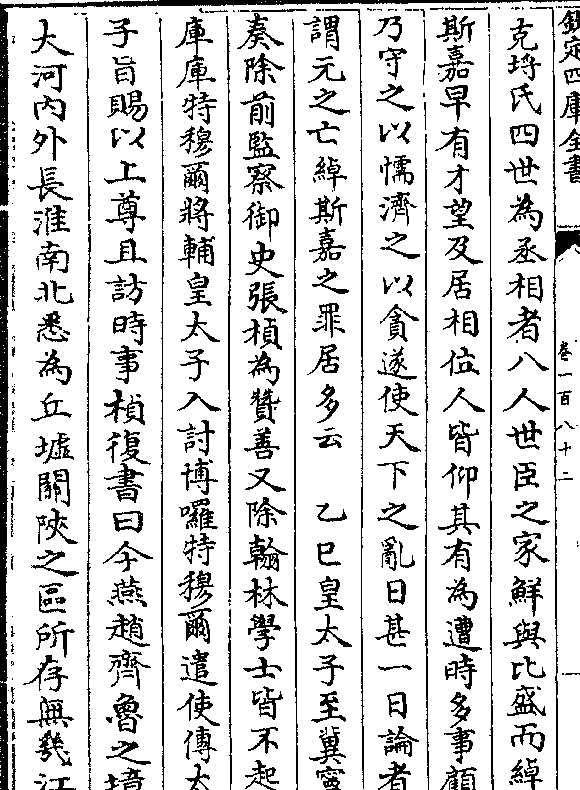 欽定四庫全書
卷一百八十二
克埒氏四世為丞相者八人世臣之家鮮與比盛而綽
斯嘉早有才望及居相位人皆仰其有為遭時多事顧
乃守之以懦濟之以貪遂使天下之亂日甚一日論者
謂元之亡綽斯嘉之罪居多云　乙巳皇太子至冀寧
奏除前監察御史張楨為贊善又除翰林學士皆不起
庫庫特穆爾將輔皇太子入討博囉特穆爾遣使傳太
子旨賜以上尊且訪時事楨復書曰今燕趙齊魯之境
大河內外長淮南北悉為丘墟關陝之區所存無幾江